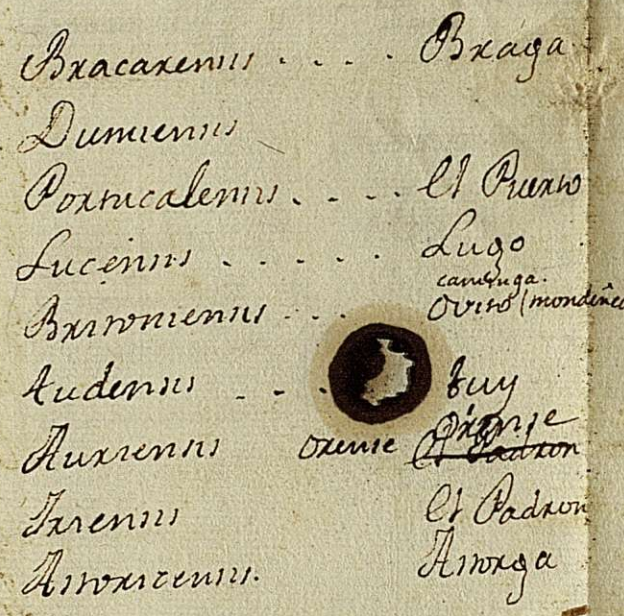 Bracarensis . . . . Braga
Dumiensis
Portucalensis . . . . El Puerto
Lucensis . . . . . Lugo
Britoniensis . . . Ovito (mondoñe
Tudensis . . . Tuy
Auriensis Orense Orense El Padron
Iriensis El Padron
Astoricensis. Astorga